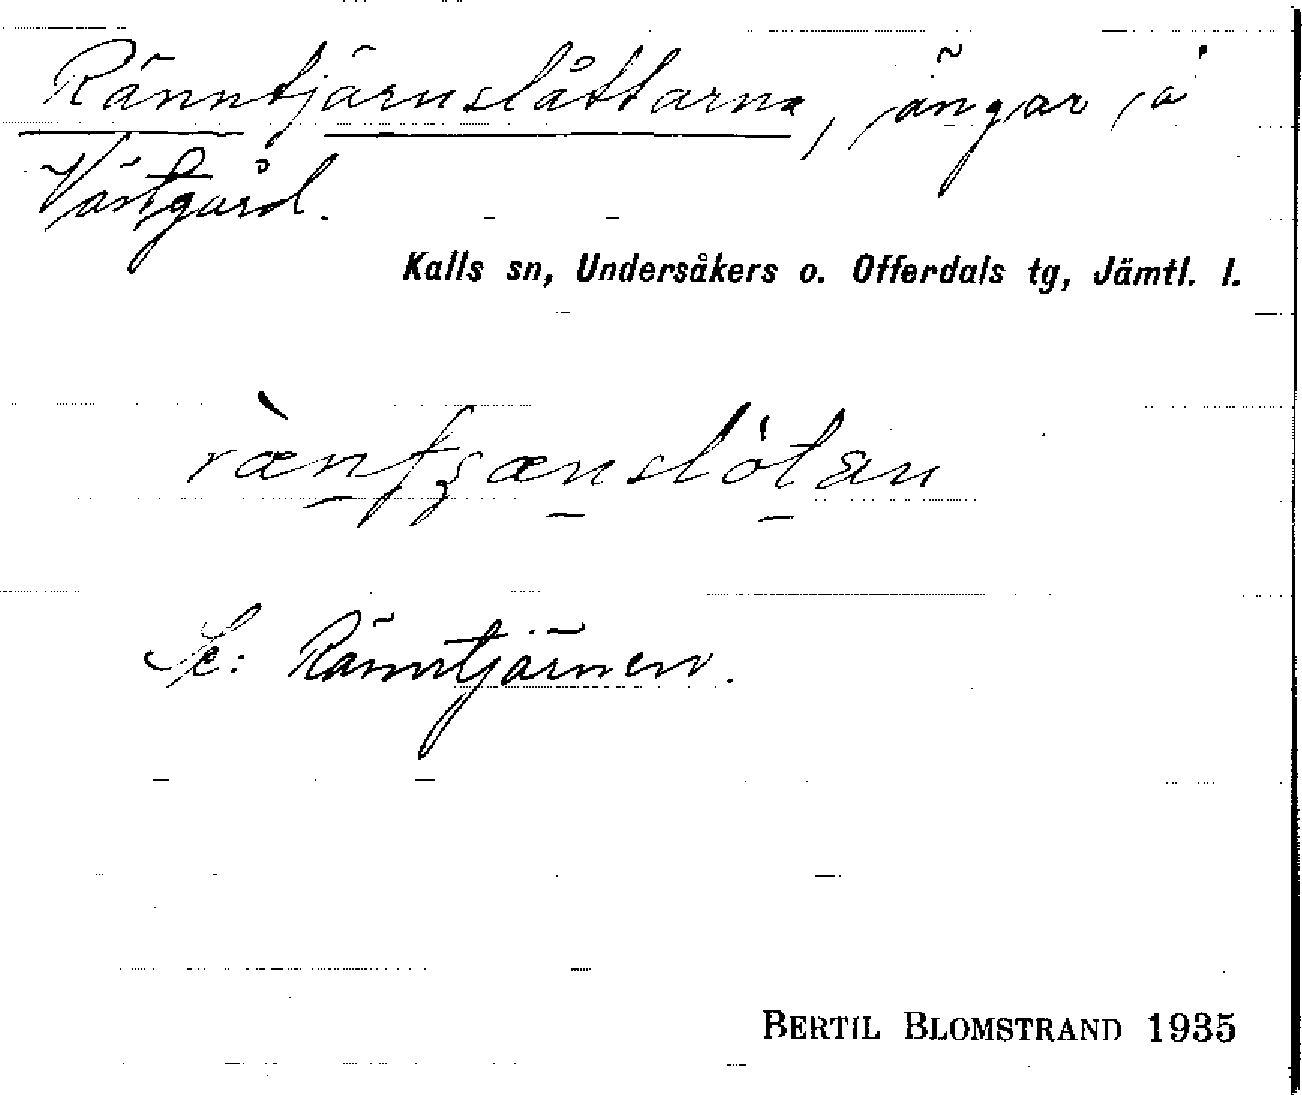 Ränntjärnslåttarna, ängar å
Västgård.
Kalls sn, Undersåkers o. Offerdals tg, Jämtl. l.
Se: Ränntjärnen.
BERTIL BLOMSTRAND 1935